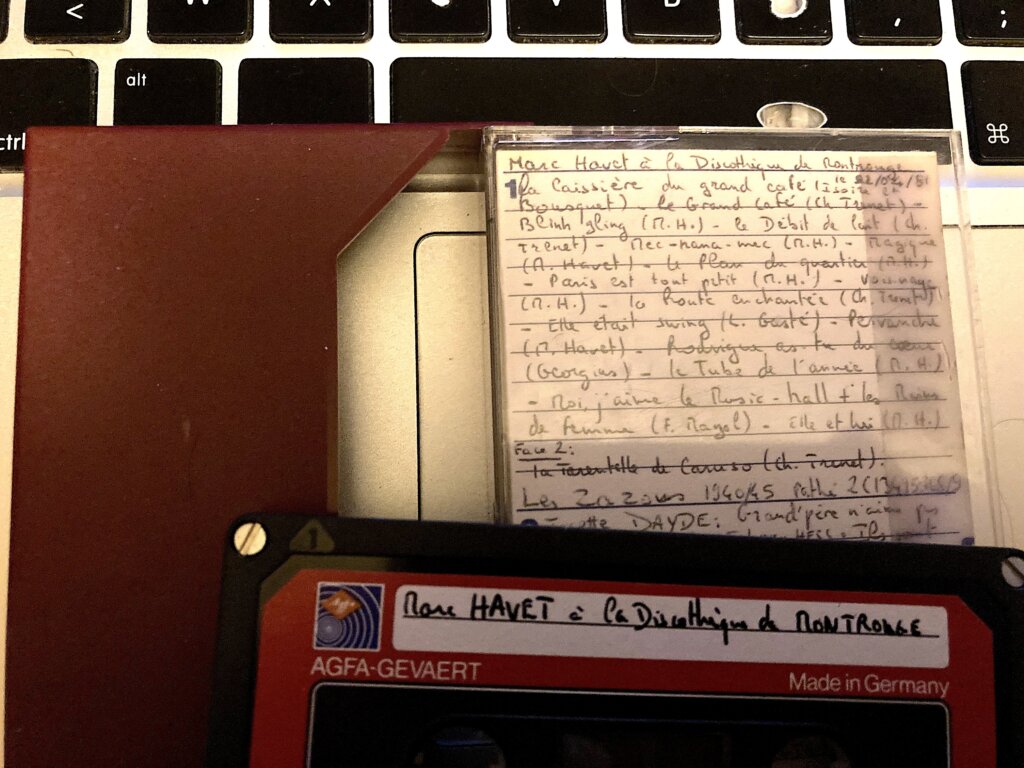 <
,
;
alt
ctrl
⌘
Marc Havet à la Discothèque de Montrouge
1 La Caissière du grand café (
Bousquet) - le Grand Café (Ch. Trenet) -
Blinh gling (M.H.) - le Débit de lait (Ch.
Trenet) - Mec-nana-mec (M.H.) - Magique
(M. Havet) - le Plan du quartier (M.H.)
- Paris est tout petit (M.H.) -
(M.H.) - la Route enchantée (Ch. Trenet)
- Elle était swing (L. Gasté) - Pervenche
(M. Havet) - Rodrigue as-tu du cœur
(Georgius) - le Tube de l'année (M.H.)
- Moi, j'aime le Music-hall + les Mains
de femme (F. Mayol) - Elle et lui (M.H.)
Face 2:
la Tarentelle de Caruso (Ch. Trenet).
Les Zazous 1940/45 Pathé 2C
DAYDE: Grand'père n'aime
1
Marc HAVET à la Discothèque de MONTROUGE
AGFA-GEVAERT
Made in Germany